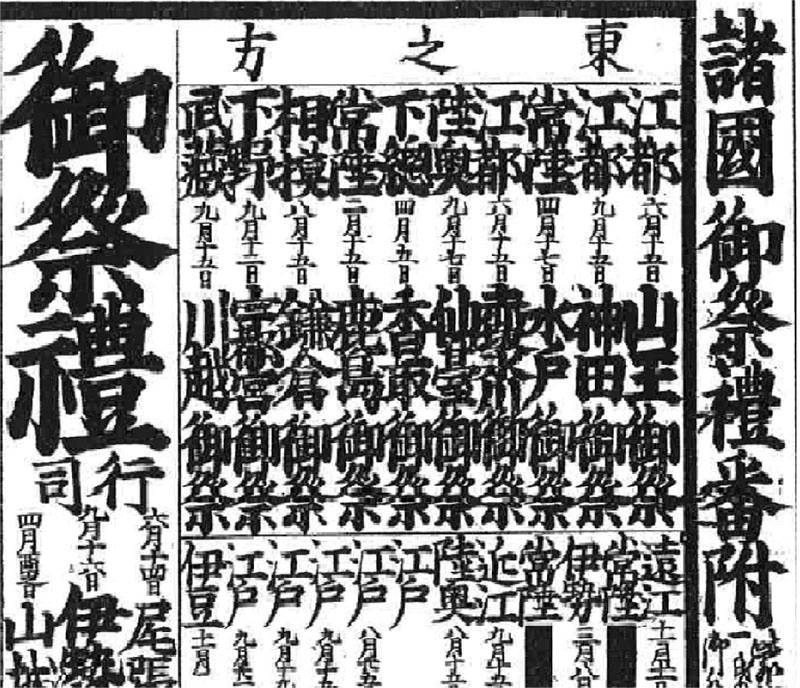 諸國御祭禮番附
東之方
江都 六月十五日 山王御祭
江都 九月十五日 神田御祭
常陸 四月十七日 水戸御祭
江都 六月十五日 御祭
陸奥 九月十七日 仙臺御祭
下總 四月五日 香取御祭
常陸 二月十五日 鹿島御祭
相模 八月十五日 鎌倉御祭
下野 九月十二日 宇都宮御祭
武藏 九月十五日 川越御祭
遠江
常陸
伊勢
常陸
近江
陸奥
江戸
江戸
江戸
江戸
江戸
伊豆
御祭禮
行司
六月十四日 尾張
九月十六日 伊勢
四月酉日 山城